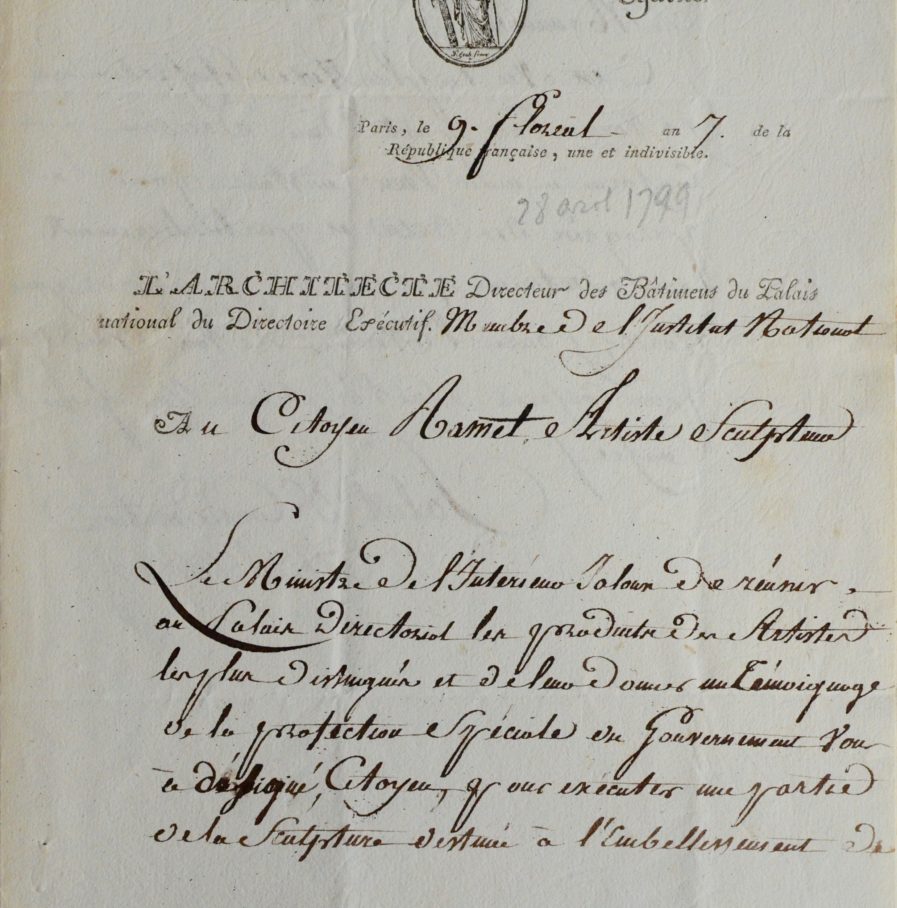 Egalité.
Paris, le 9. floréal - an 7. de la
République française, une et indivisible.
28 avril 1799
L'ARCHITECTE Directeur des Bâtimens du Palais
national du Directoire Exécutif. Membre de l'Institut National
Au Citoyen Ramet, Artiste Sculpteur
Le Ministre de l'Intérieur Jaloux de réunir
au Palais Directorial les produits des Artistes
les plus distingués et de leur donner un Témoignage
de la protection Spéciale du Gouvernement Vous
à désigné, Citoyen, pour exécuter une partie
de la Sculpture destinée à l'Embellissement de